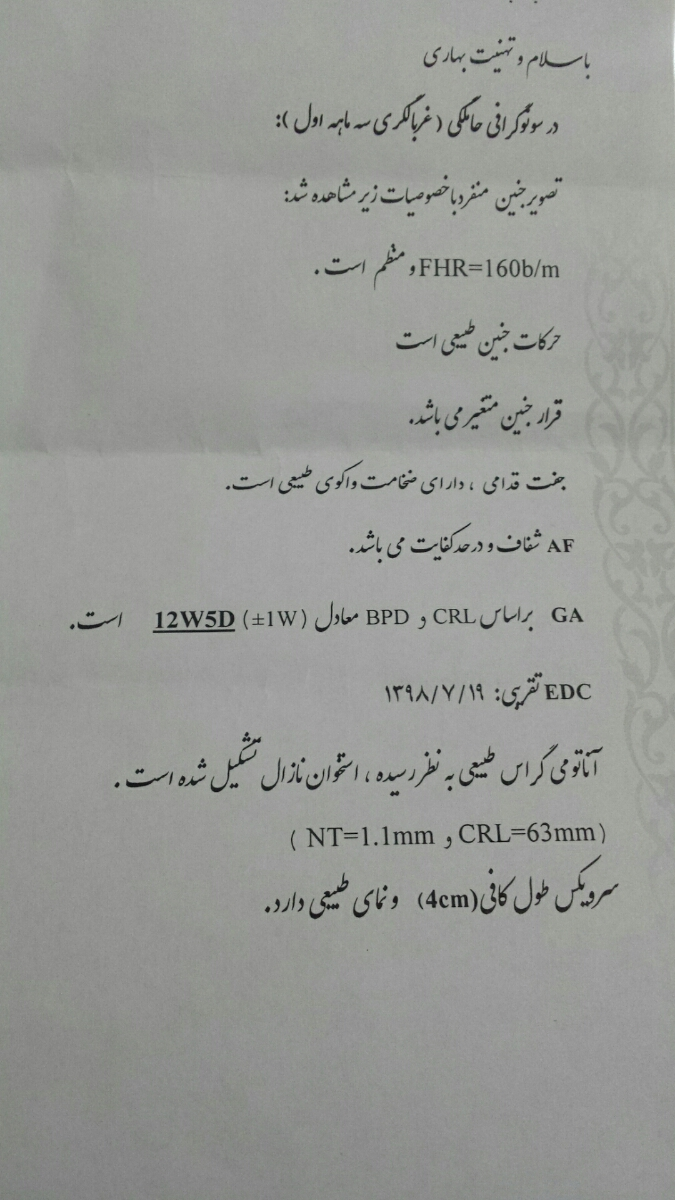 باسلام و تهنیت بهاری
در سونوگرافی حاملگی ( غربالگری سه ماهه اول ):
تصویر جنین منفرد با خصوصیات زیر مشاهده شد:
FHR=160b/m و منظم است .
حرکات جنین طبیعی است
قرار جنین متغیر می باشد.
جفت قدامی ، دارای ضخامت واکوی طبیعی است.
AF شفاف و در حد کفایت می باشد.
GA براساس CRL و BPD معادل (±1W) 12W5D است.
EDC تقریبی: ۱۳۹۸/۷/۱۹
آناتومی گراس طبیعی به نظر رسیده ، استخوان نازال تشکیل شده است .
(CRL=63mm و NT=1.1mm )
سرویکس طول کافی (4cm) و نمای طبیعی دارد.